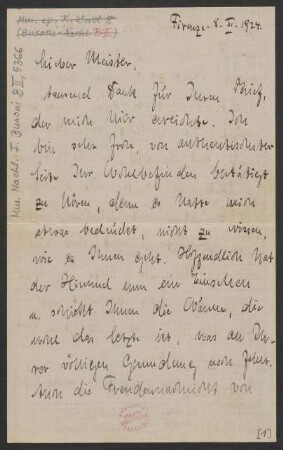 Mus. ep. K. Weill 8
(Busoni-Nachl. B II)
Mus. Nachl. F. Busoni B II, 5366
Firenze - 8. VI. 1924.
Lieber Meister,
tausend Dank für Ihren Brief,
der mich hier erreichte. Ich
bin sehr froh, von authentischster
Seite Ihr Wohlbefinden bestätigt
zu hören, denn es hatte mich
etwas bedrückt, nicht zu wissen,
wie es Ihnen geht. Hoffentlich hat
der Himmel nun ein Einsehen
u. schickt Ihnen die Wärme, die
wohl das letzte ist, was an Ih-
rer völligen Gesundung noch fehlt.
Auch die Freudennachricht von
[1]